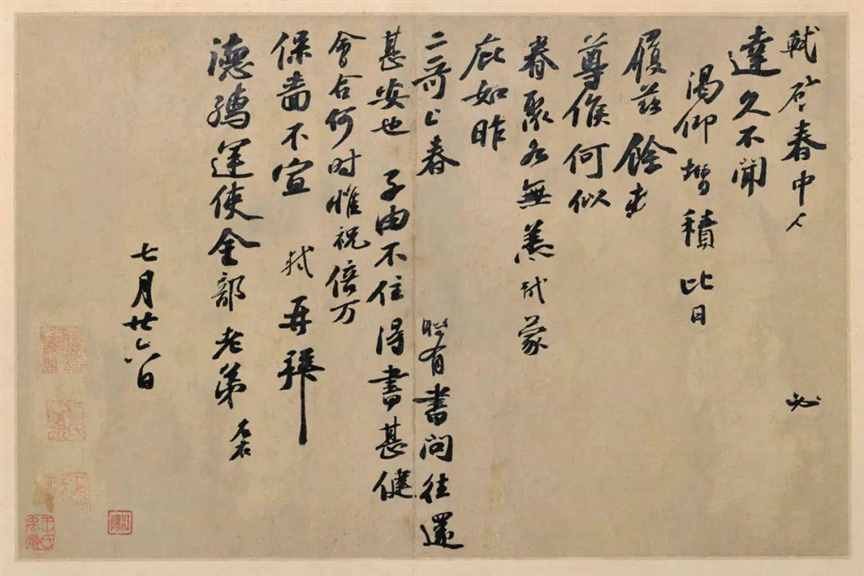 軾啓春中人 必
達久不聞
渴仰增積比日
履茲餘春
尊候何似
眷聚各無恙軾蒙
庇如昨
二哥上春 有書問往還
甚安也 子由不住得書甚健
會合何時惟祝倍万
保嗇不宣 軾再拜
德孺運使金部老弟 左右
七月廿六日